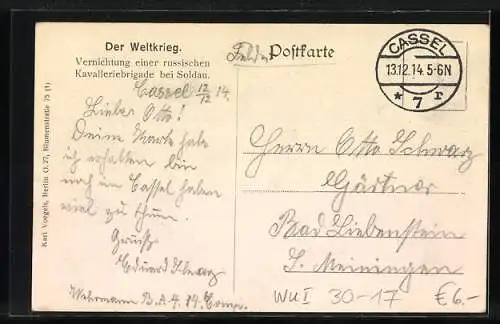 Der Weltkrieg.
Vernichtung einer russischen
Kavalleriebrigade bei Soldau.
Postkarte
CASSEL
13.12.14.5-6N
* 7 r
Cassel 12/12 14.
Lieber Otto!
Deine Karte habe
ich erhalten bin
noch in Cassel haben
viel zu thun.
Gruß
Eduard Schwarz
Wehrmann B.A.4. 14. Comp.
Herrn Otto Schwarz
Gärtner
Bad Liebenstein
S. Meiningen
Karl Voegels, Berlin O. 27, Blumenstraße 75 (1)
WU I 30-17 €6.-